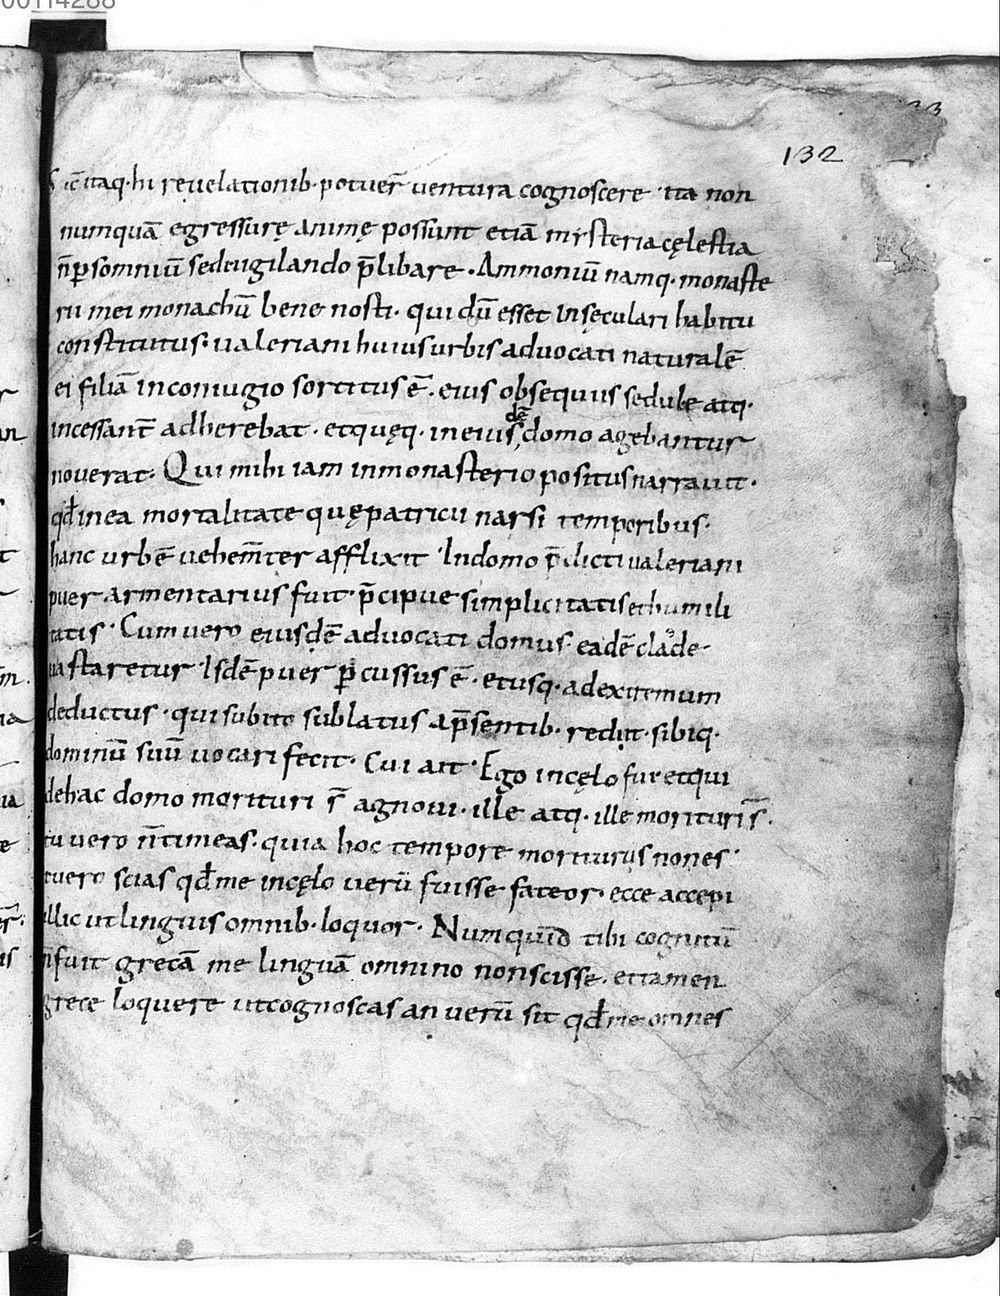 00114288
33
132
Sic̄ itaq· hi reuelationib· potuer̄ uentura cognoscere · ita non
numquā egressurę animę possunt etiā mysteria cęlestia
n̄ ꝑ somniū sed uigilando p̄libare · Ammoniū namq· monaste
rii mei monachū bene nosti · qui dū esset in sęculari habitu
constitutus · ualeriani huius urbis aduocati naturalē
ei filiā in coniugio sortitus ē · eius obsequiis sedule atq·
incessant̄ adherebat · et quęq· in eius dē domo agebantur
nouerat · Qui mihi iam in monasterio positus narrauit ·
qđ in ea mortalitate quę patricii narsi temporibus ·
hanc urbē uehem̄ter afflixit · In domo p̄dicti ualeriani
puer armentarius fuit p̄cipue simplicitatis et humili
tatis · Cum uero eiusdē aduocati domus eadē clade ·
uastaretur · Isdē puer ꝑcussus ē · et usq· ad extremum
deductus · qui subito sublatus a p̄sentib· rediit · sibiq·
dominū suū uocari fecit · Cui ait · Ego in cęlo fui et qui
de hac domo morituri s̄ agnoui · ille atq· ille morituri s̄ ·
tu uero n̄ timeas · quia hoc tempore moriturus non es ·
tuero scias qđ me in cęlo uerū fuisse fateor · ecce accepi
illic ut linguis omnib· loquor · Numquid tibi cognitū
n̄ fuit grecā me linguā omnino non scisse · et tamen
grece loquere ut cognoscas an uerū sit qđ me omnes